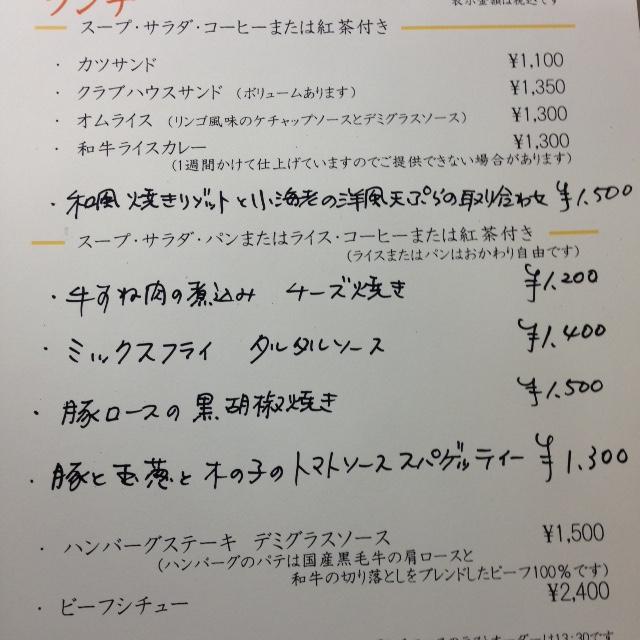 ランチ
表示金額は税込です
スープ・サラダ・コーヒーまたは紅茶付き
・ カツサンド ¥1,100
・ クラブハウスサンド (ボリュームあります) ¥1,350
・ オムライス (リンゴ風味のケチャップソースとデミグラスソース) ¥1,300
・ 和牛ライスカレー ¥1,300
(1週間かけて仕上げていますのでご提供できない場合があります)
・ 和風焼きリゾットと小海老の洋風天ぷらの取り合わせ ¥1.500
スープ・サラダ・パンまたはライス・コーヒーまたは紅茶付き
(ライスまたはパンはおかわり自由です)
・ 牛すね肉の煮込み チーズ焼き ¥1.200
・ ミックスフライ タルタルソース ¥1.400
・ 豚ロースの黒胡椒焼き ¥1.500
・ 豚と玉葱と木の子のトマトソーススパゲッティー ¥1.300
・ ハンバーグステーキ デミグラスソース ¥1,500
(ハンバーグのパテは国産黒毛牛の肩ロースと
和牛の切り落としをブレンドしたビーフ100%です)
・ ビーフシチュー ¥2,400
オーダーは13:30です